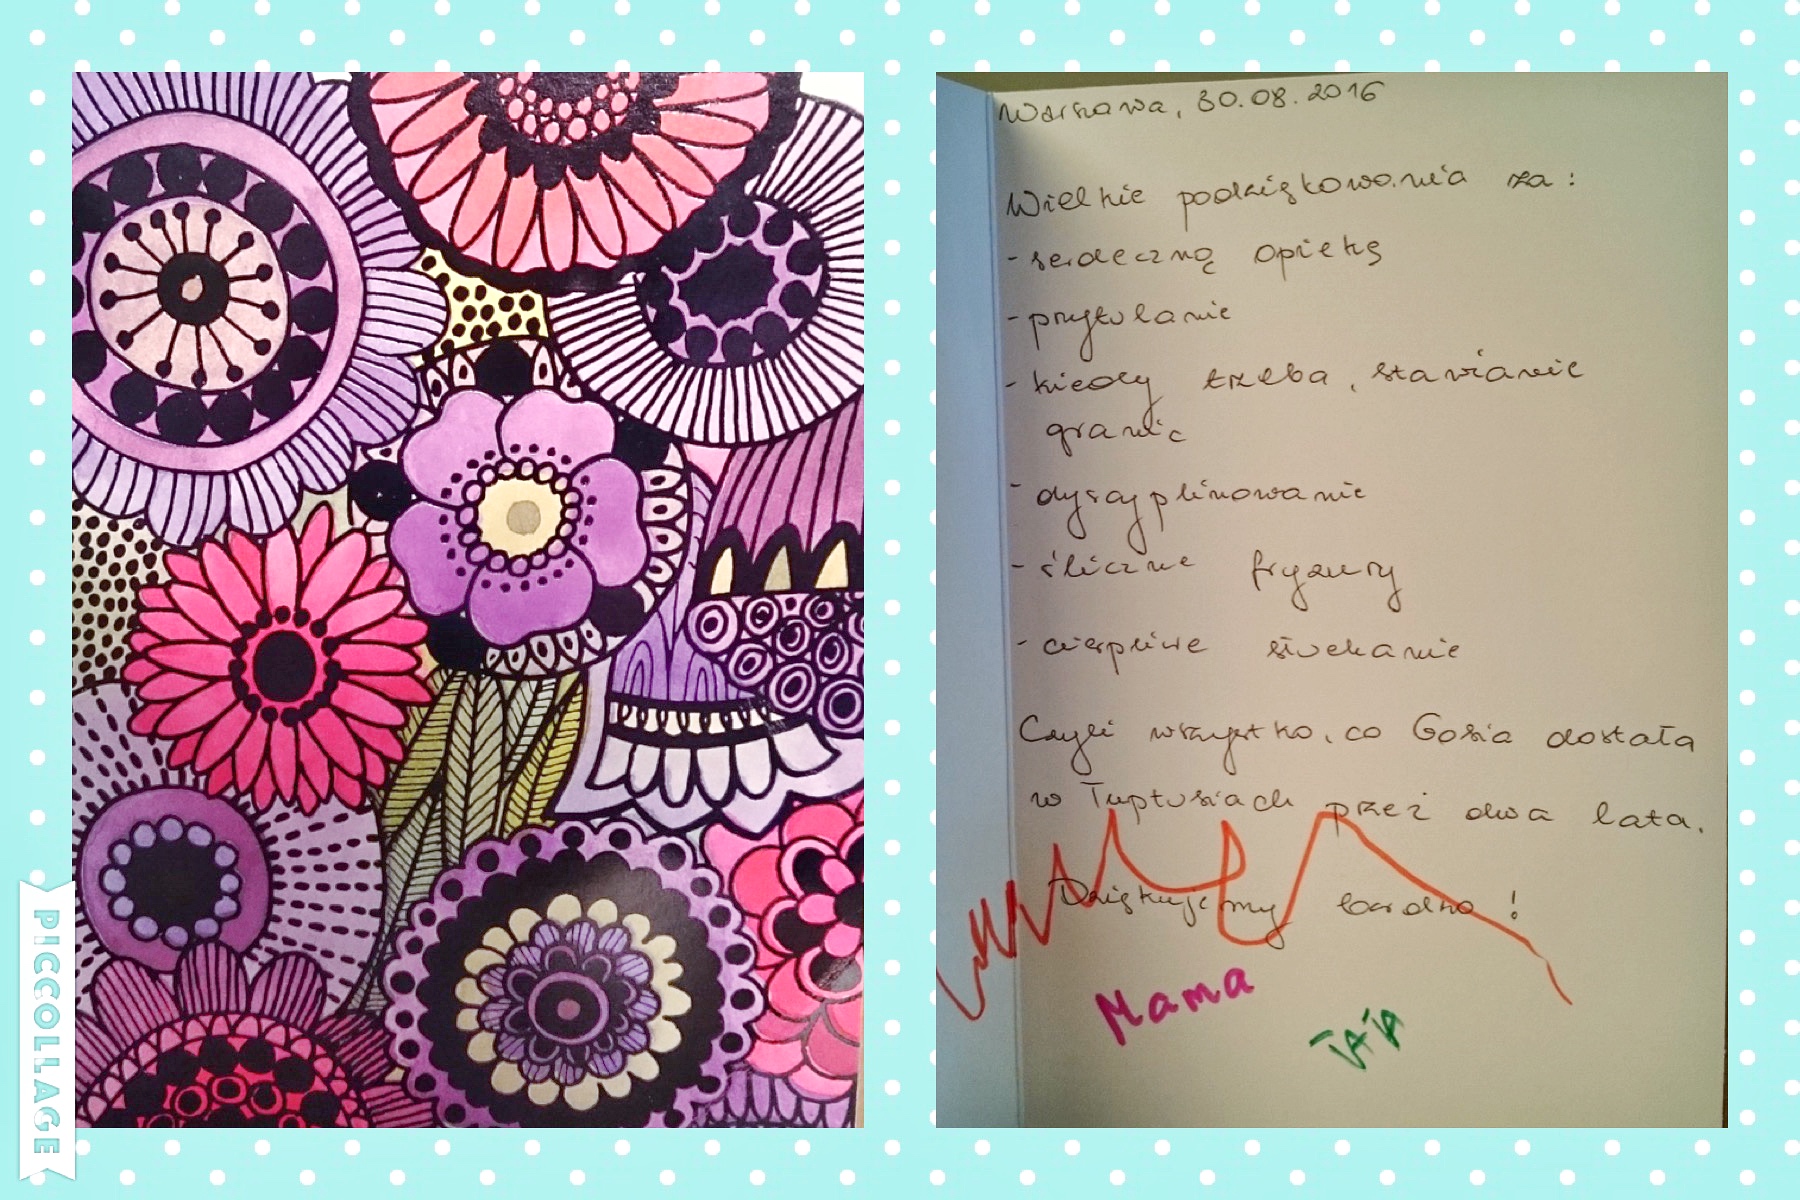 Warszawa, 30.08.2016
Wielkie podziękowania za:
- serdeczną opiekę
- przytulanie
- kiedy trzeba, stawianie
granic
- dyscyplinowanie
- śliczne fryzury
- cierpliwe słuchanie
Czyli wszystko, co Gosia dostała
w Tuptusiach przez dwa lata.
Dziękujemy bardzo!
Mama
TATA
PICCOLLAGE